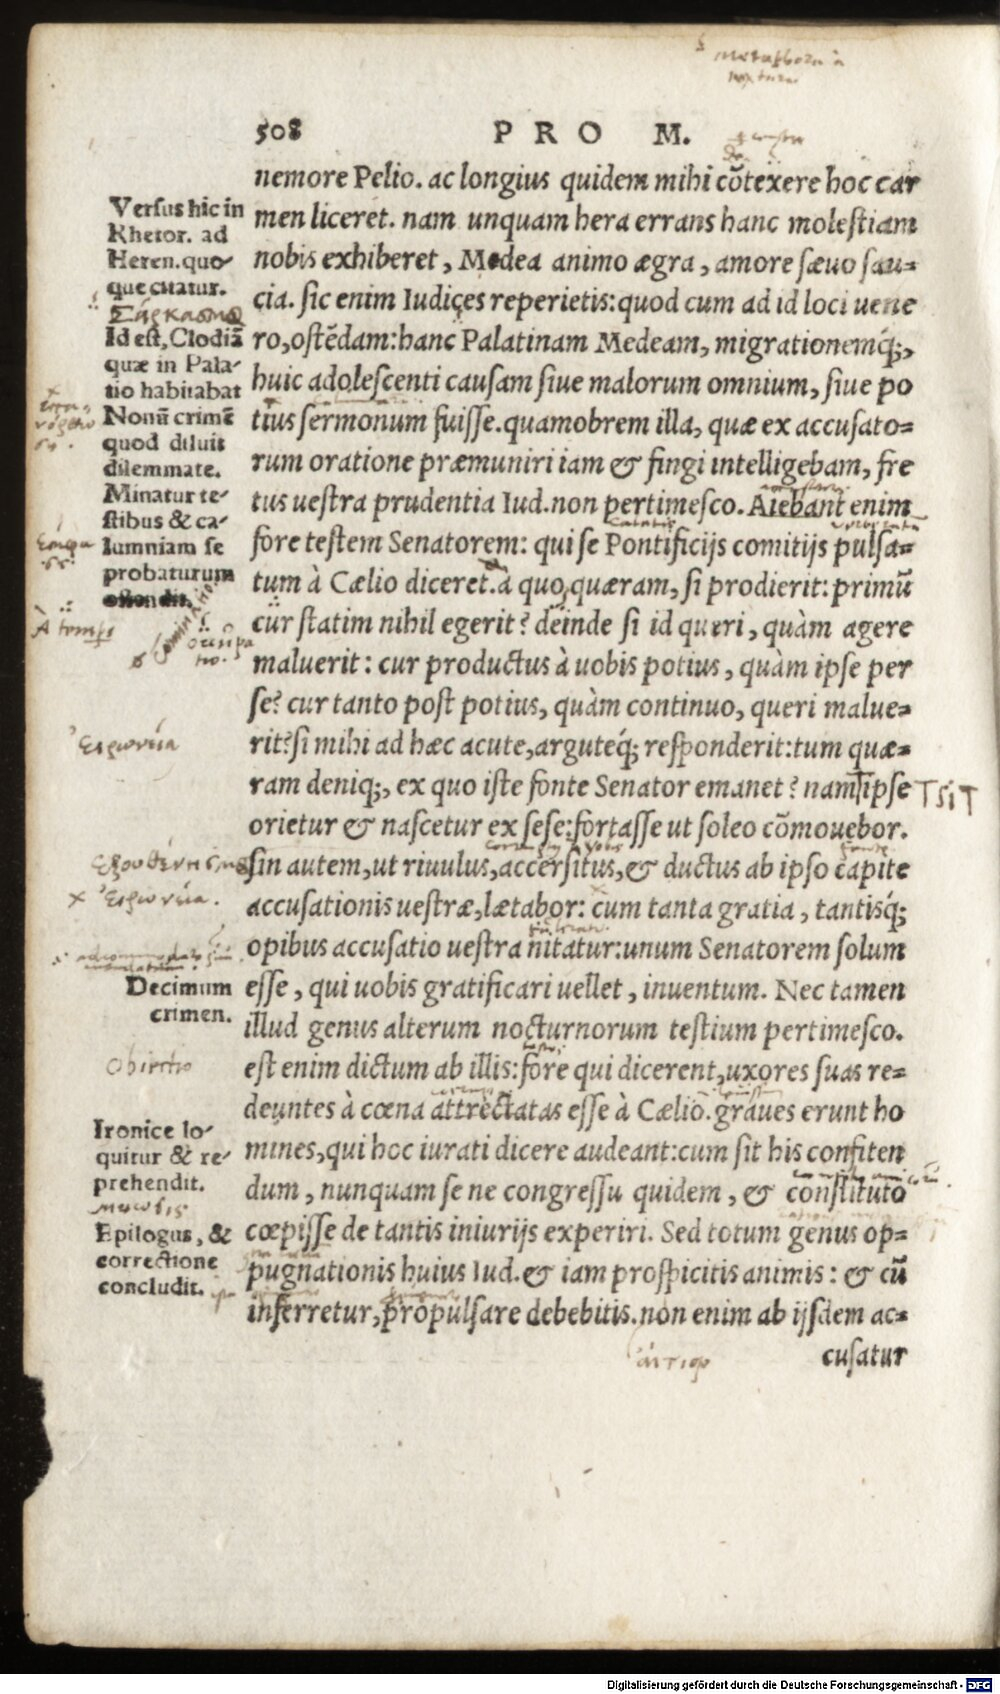 508 PRO M.
nemore Pelio. ac longius quidem mihi cõtexere hoc car
men liceret. nam unquam hera errans hanc molestiam
nobis exhiberet, Medea animo ægra, amore sæuo sau=
cia. sic enim Iudices reperietis: quod cum ad id loci uene
ro, ostẽdam: hanc Palatinam Medeam, migrationemq́;,
huic adolescenti causam siue malorum omnium, siue po
tius sermonum fuisse. quamobrem illa, quæ ex accusato=
rum oratione præmuniri iam & fingi intelligebam, fre
tus uestra prudentia Iud. non pertimesco. Aiebant enim
fore testem Senatorem: qui se Pontificijs comitijs pulsa=
tum à Cælio diceret. à quo quæram, si prodierit: primũ
cur statim nihil egerit? deinde si id queri, quàm agere
maluerit: cur productus à uobis potius, quàm ipse per
se? cur tanto post potius, quàm continuo, queri malue=
rit? si mihi ad hæc acute, arguteq́; responderit: tum quæ=
ram deniq;, ex quo iste fonte Senator emanet? nam ipse
orietur & nascetur ex sese: fortasse ut soleo cõmouebor.
sin autem, ut riuulus, accersitus, & ductus ab ipso capite
accusationis uestræ, lætabor: cum tanta gratia, tantisq́;
opibus accusatio uestra nitatur: unum Senatorem solum
esse, qui uobis gratificari uellet, inuentum. Nec tamen
illud genus alterum nocturnorum testium pertimesco.
est enim dictum ab illis: fore qui dicerent, uxores suas re=
deuntes à cœna attrectatas esse à Cælio. graues erunt ho
mines, qui hoc iurati dicere audeant: cum sit his confiten
dum, nunquam se ne congressu quidem, & constituto
cœpisse de tantis iniurijs experiri. Sed totum genus op=
pugnationis huius Iud. & iam prospicitis animis: & cũ
inferretur, propulsare debebitis. non enim ab ijsdem ac=
cusatur
Versus hic in
Rhetor. ad
Heren. quo-
que citatur.
Id est, Clodiã
quæ in Pala-
tio habitabat
Nonũ crimẽ
quod diluit
dilemmate.
Minatur te-
stibus & ca-
lumniam se
probaturum
ostendit.
Decimum
crimen.
obiectio
Ironice lo-
quitur & re-
prehendit.
Epilogus, &
correctione
concludit.
T SIT
Digitalisierung gefördert durch die Deutsche Forschungsgemeinschaft - DFG